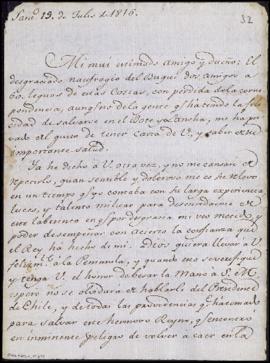 Sant.º 19. de Julio de 1816.
32
Mi mui estimado Amigo y dueño: El
desgraciado naufragio del Buque Dos Amigos a
60. leguas de estas Costas, con perdida de la corres-
pondencia, aunq.e no de la gente q.e ha tenido la feli-
cidad de salvarse en el Bote y Lancha, me ha pri-
vado el gusto de tener carta de V. y saber de su
importante salud.
Ya he dicho a V. otra vez, y no me cansaré de
repetirlo, quan sensible y doloroso me es
en un tiempo q.e yo contaba con su larga experiencia
luces, y talento militar para
este laberinto en q.e por desgracia mi veo metido y
poder desempeñar con acierto la confianza que
el Rey ha hecho de mi. Dios quiera llevar a V.
feliz.te a la Peninsula, y quando eso se verifique
y tenga V. el honor de besar la Mano a S. M.
espero no se olvidará de hablarle del Presidente
de Chile, y de todas las providencias q.e ha tomado
para salvar este hermoso Reyno, q.e se encuentra
en inminente peligro de volver a caer en la